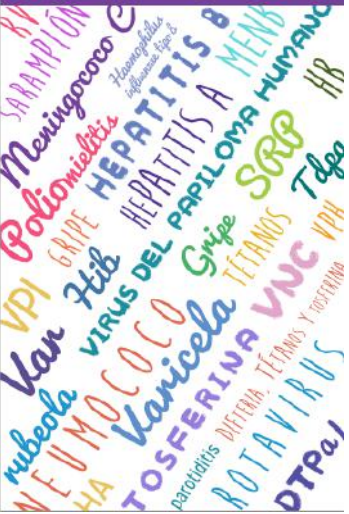 RV
SARAMPIÓN
Meningococo C
Haemophilus
influenzae tipo b
HEPATITIS B
MENB
Poliomielitis
HEPATITIS A
VIRUS DEL PAPILOMA HUMANO
HB
GRIPE
SRP
Tdpa
VPI
Hib
Gripe
TÉTANOS
VPH
Var
VNC
rubeola
NEUMOCOCO
Varicela
DIFTERIA, TÉTANOS Y TOSFERINA
HA
TOSFERINA
parotiditis
ROTAVIRUS
DTPa/